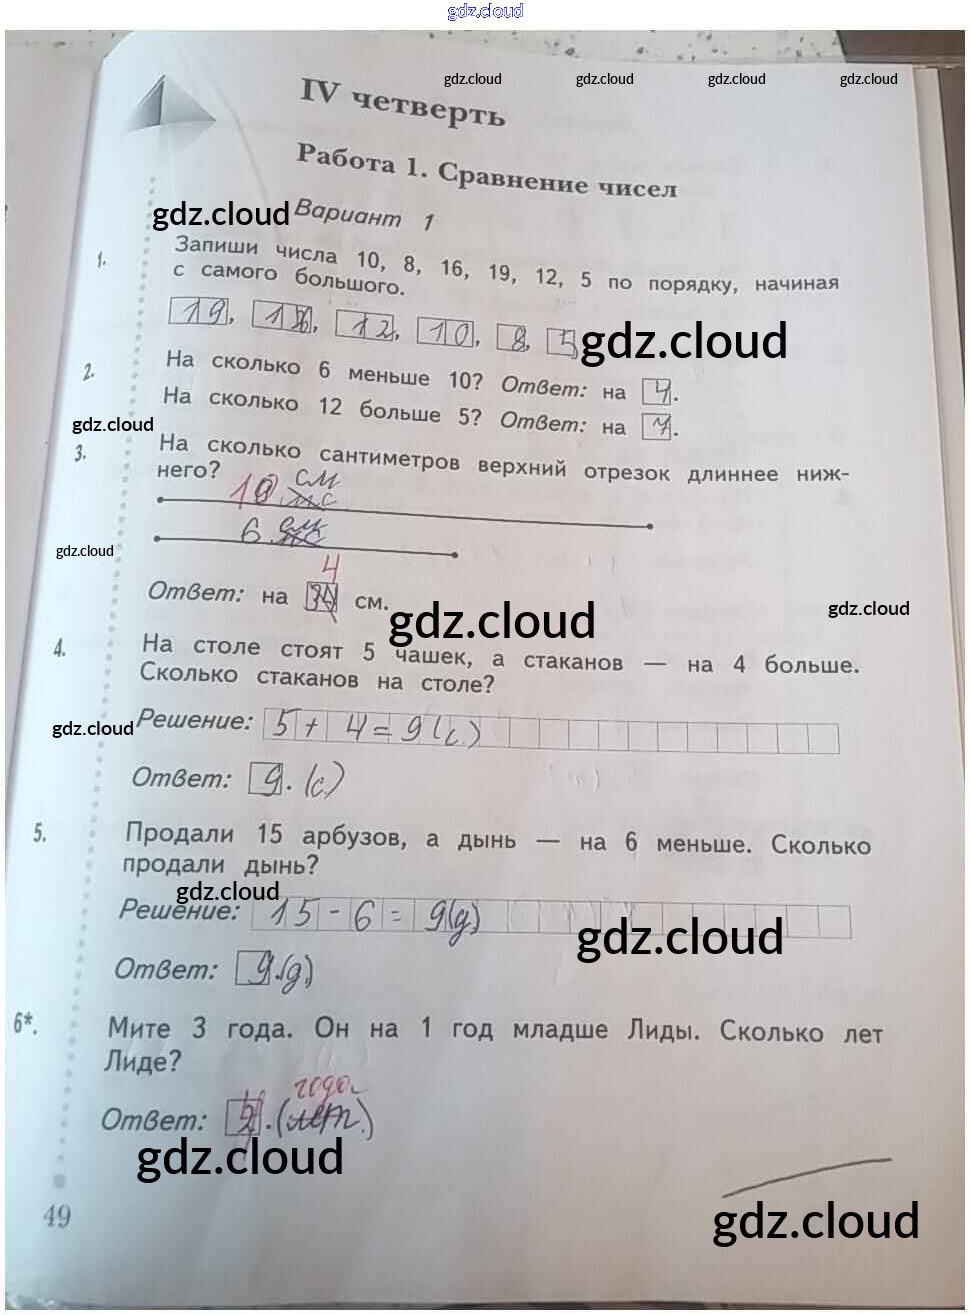 gdz.cloud
gdz.cloud gdz.cloud gdz.cloud gdz.cloud
IV четверть
Работа 1. Сравнение чисел
gdz.cloud
Вариант 1
1. Запиши числа 10, 8, 16, 19, 12, 5 по порядку, начиная
с самого большого.
19, 16, 12, 10, 8, 5
gdz.cloud
2. На сколько 6 меньше 10? Ответ: на 4.
На сколько 12 больше 5? Ответ: на 7.
gdz.cloud
3. На сколько сантиметров верхний отрезок длиннее ниж-
него?
10 см
6 см
gdz.cloud
4
Ответ: на см.
gdz.cloud
gdz.cloud
4. На столе стоят 5 чашек, а стаканов — на 4 больше.
Сколько стаканов на столе?
gdz.cloud
Решение: 5 + 4 = 9 (с.)
Ответ: 9. (с.)
5. Продали 15 арбузов, а дынь — на 6 меньше. Сколько
продали дынь?
gdz.cloud
Решение: 15 - 6 = 9(д)
gdz.cloud
Ответ: 9.(д)
6*. Мите 3 года. Он на 1 год младше Лиды. Сколько лет
Лиде?
года
Ответ: . (лет.)
gdz.cloud
49
gdz.cloud